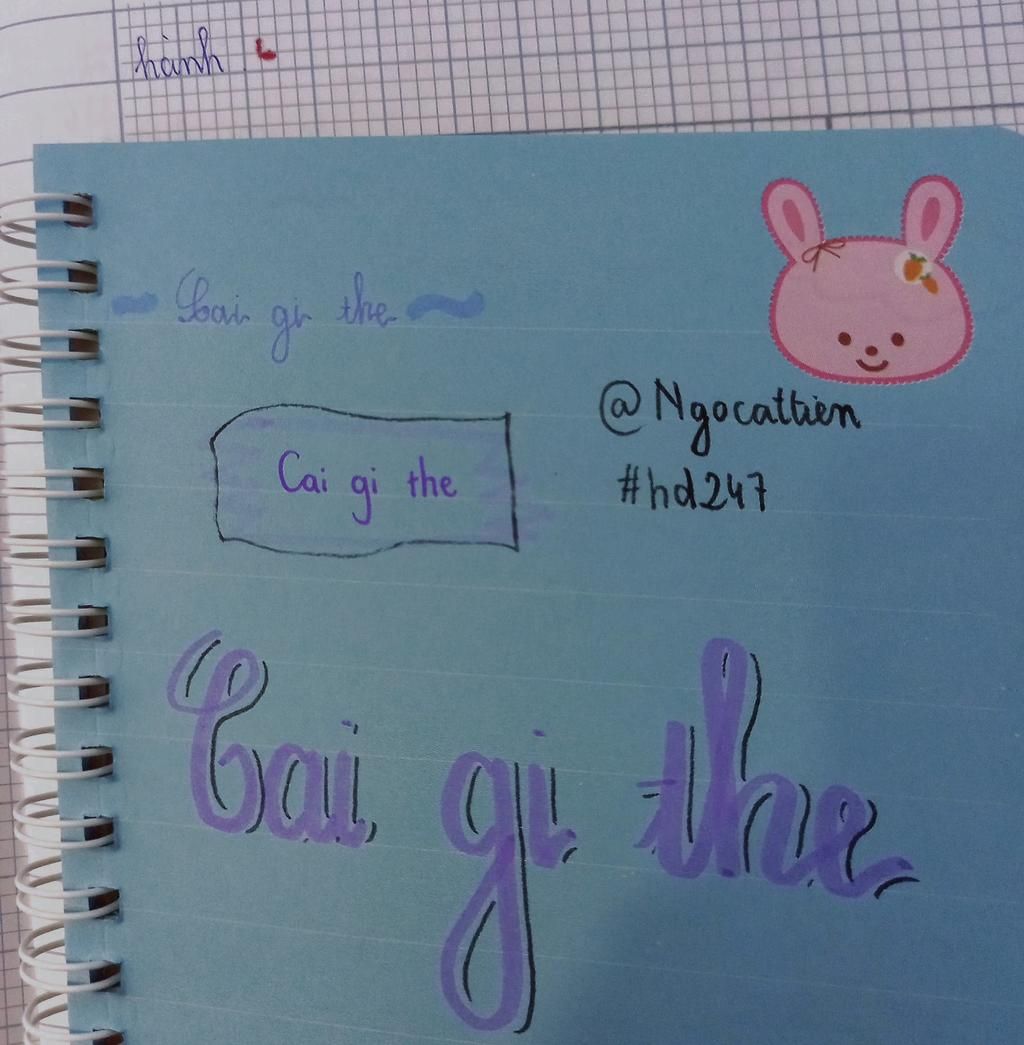 hành
Cai gi the
Cai gi the
@Ngocattien
#hd247
Cai gi the